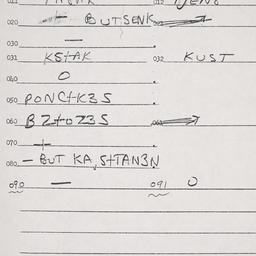 020. + BUTSENK
030. —
031. KS+AK 032 KUST
040. O
050 PONC+K3S
060 BZ+OZ3S
070. +
080. — BUT KA, S+TAN3N
090 — 091 O